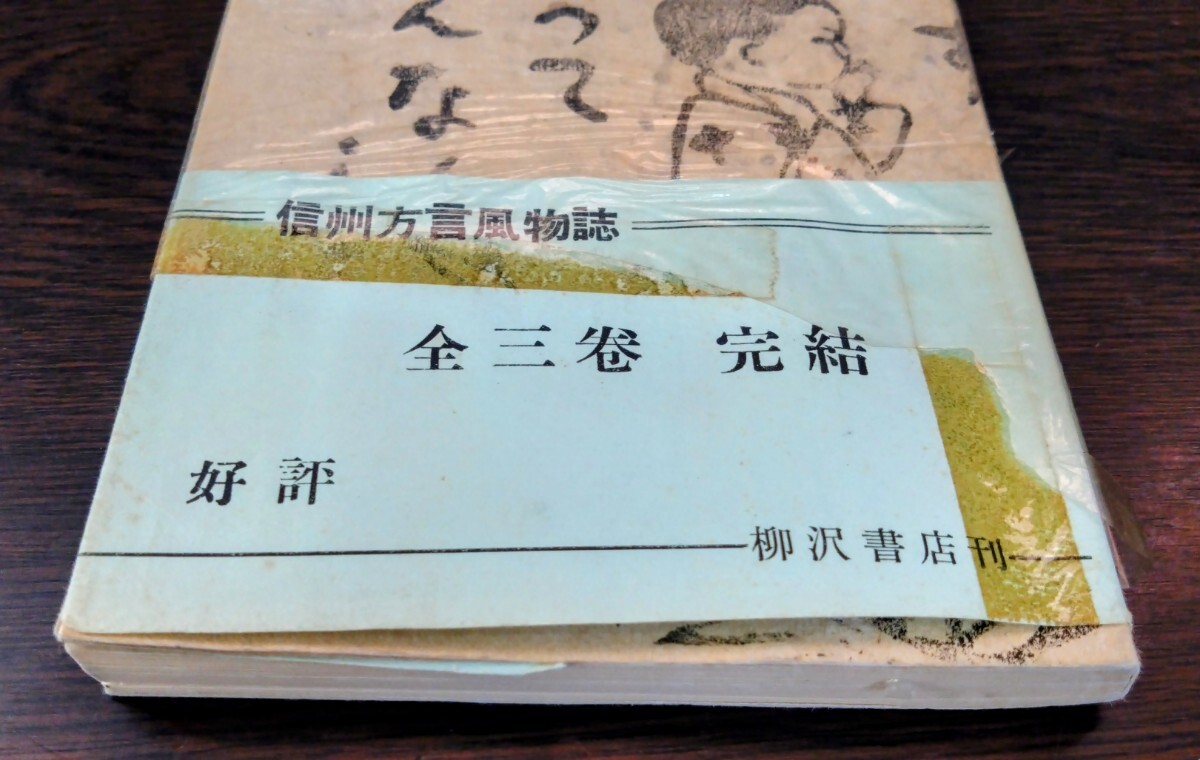 って
んな
信州方言風物誌
全三巻 完結
好評
柳沢書店刊